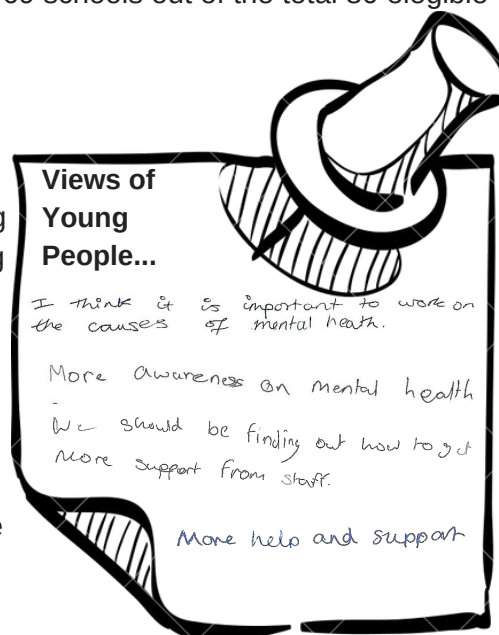 schools out of the total
Views of
Young
People...
I think it is important to work on
the causes of mental heath.
More awareness on mental health
We should be finding out how to get
more support from staff.
More help and support